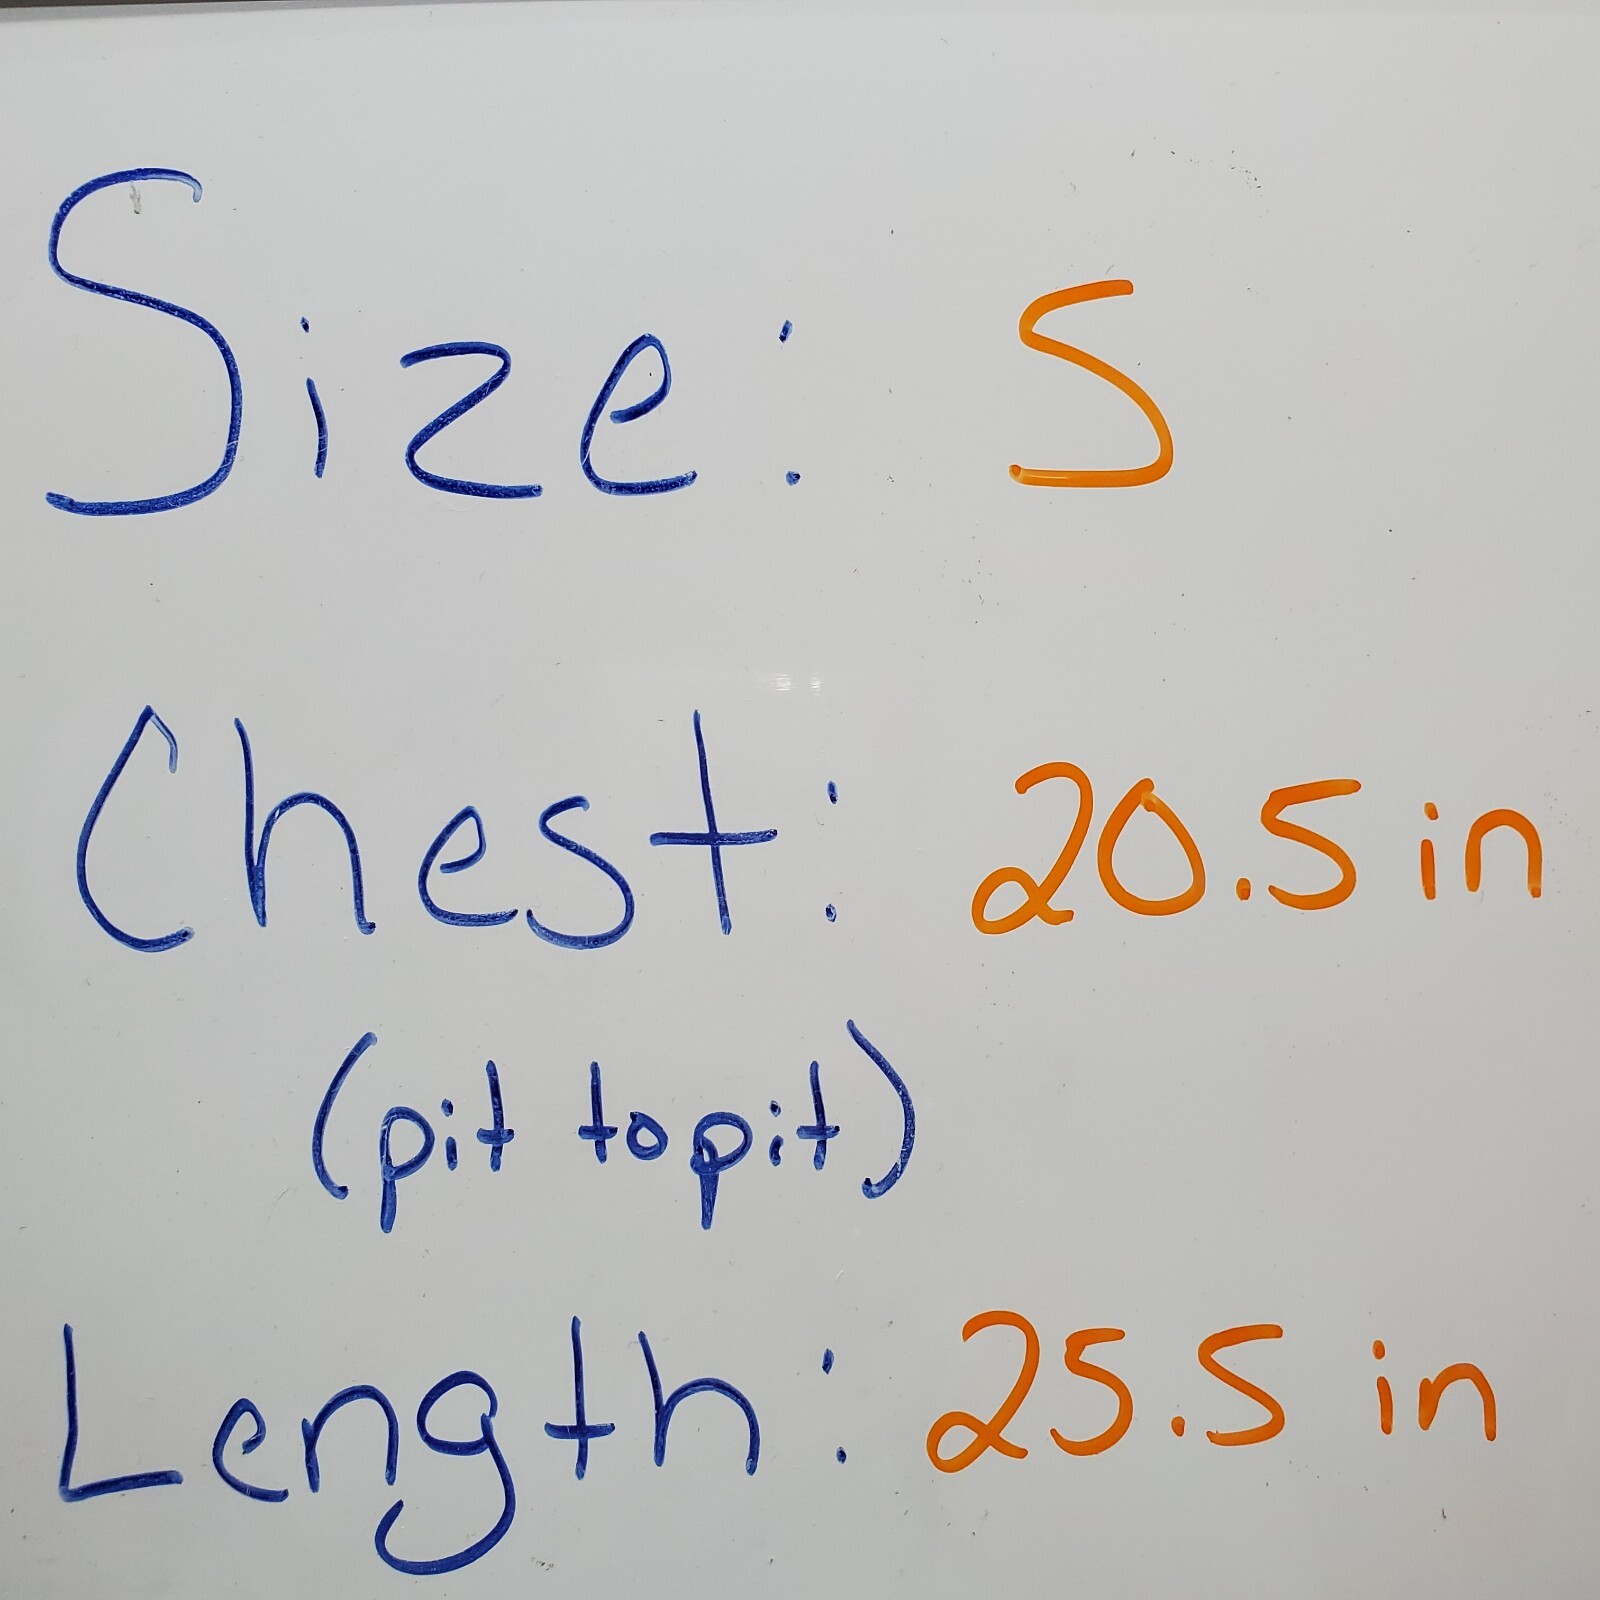 Size: S
Chest: 20.5 in
(pit to pit)
Length: 25.5 in